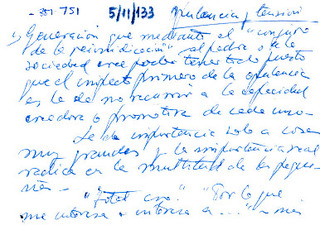 751 5/11/133 Opulencia y tensión
1) Generación que mediante el "conjuro
de la periodicidad" al padre o a la
sociedad cree poder tenerlo todo puesto
que el aspecto primero de la opulencia
es la de no recurrir a la capacidad
creadora o promotora de cada uno.
Se da importancia solo a cosas
muy grandes y la importancia real
radica en la multitud de las peque
ñas.
"Total uno." "Por lo que
me interesa o interesa a ..."